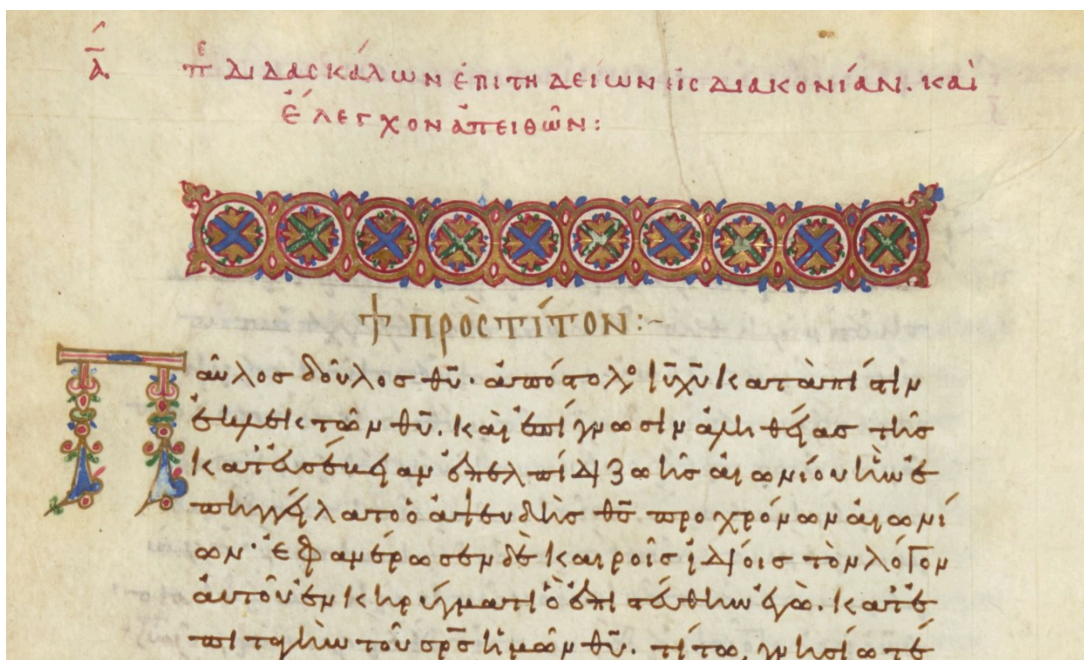 α π̅ε διδασκάλων ἐπιτηδείων εἰς διακονίαν. καὶ
ἔλεγχον ἀπειθῶν:
† πρὸς τίτον:~
Παῦλος δοῦλος θῦ· ἀπόστολος ιῦ χῦ κατὰ πίστιν
ἐκλεκτῶν θῦ. καὶ ἐπίγνωσιν ἀληθείας τῆς
κατ' εὐσέβειαν ἐπ' ἐλπίδι ζωῆς αἰωνίου ἣν ἐ
πηγγείλατο ὁ ἀψευδὴς θς̅ προ χρόνων αἰωνί
ων· ἐφανέρωσεν δὲ καιροῖς ἰδίοις τὸν λόγον
αὐτοῦ ἐν κηρύγματι ὃ ἐπιστεύθην ἐγὼ. κατ' ἐ
πιταγὴν τοῦ σρ̅ς ἡμῶν θῦ. τίτω, γνησίω τέ